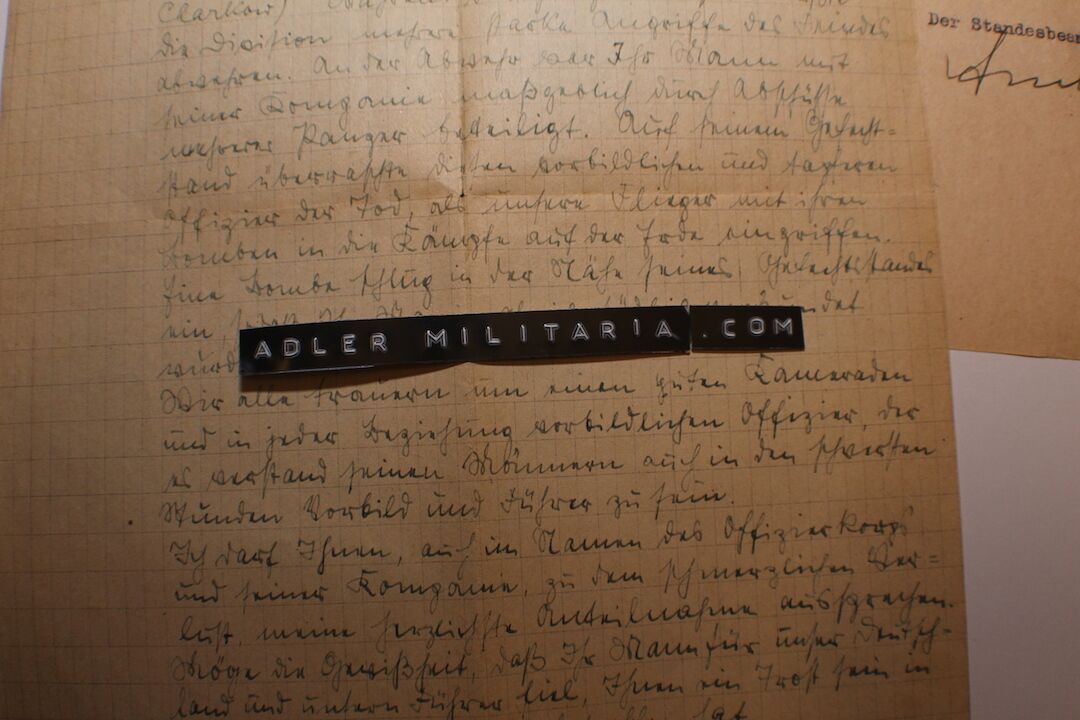 Charkow)
die Division mehrere starke Angriffe des Feindes
abwehren. An der Abwehr war Ihr Mann mit
seiner Kompanie maßgeblich durch Abschüsse
mehrerer Panzer beteiligt. Auf seinem Gefecht-
stand überraschte diesen vorbildlichen und tapferen
Offizier der Tod, als unsere Flieger mit ihren
Bomben in die Kämpfe auf der Erde eingriffen.
Eine Bombe schlug in der Nähe seines Gefechtsstandes
ein,
wurde
Wir alle trauern um einen guten Kameraden
und in jeder Beziehung vorbildlichen Offizier, der
es verstand seinen Männern auch in den schwersten
Stunden Vorbild und Führer zu sein.
Ich darf Ihnen, auch im Namen des Offizierkorps
und seiner Kompanie, zu dem schmerzlichen Ver-
lust, meine herzlichste Anteilnahme aussprechen.
Möge die Gewißheit, daß Ihr Mann für unser Deutsch-
land und unsern Führer fiel, Ihnen ein Trost sein in
ADLER MILITARIA .COM
Der Standesbeam